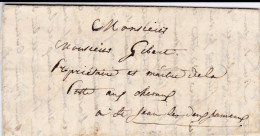 Monsieur
Monsieur Gibert
Propriétaire et maître de la
Poste aux chevaux
à St Jean les deux jumeaux